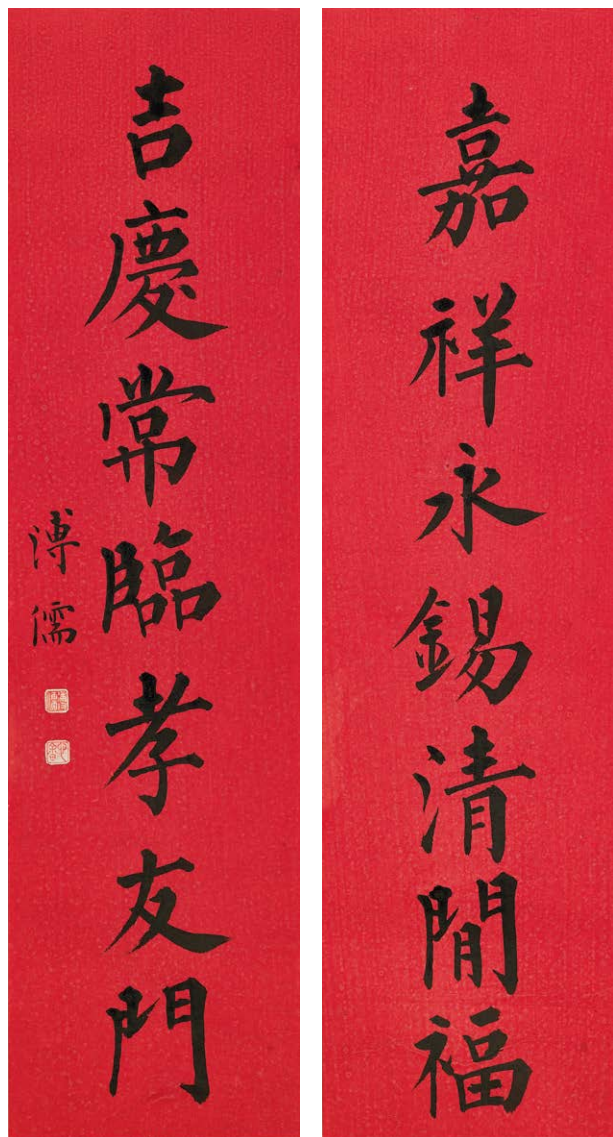 嘉祥永錫清閒福
吉慶常臨孝友門
溥儒